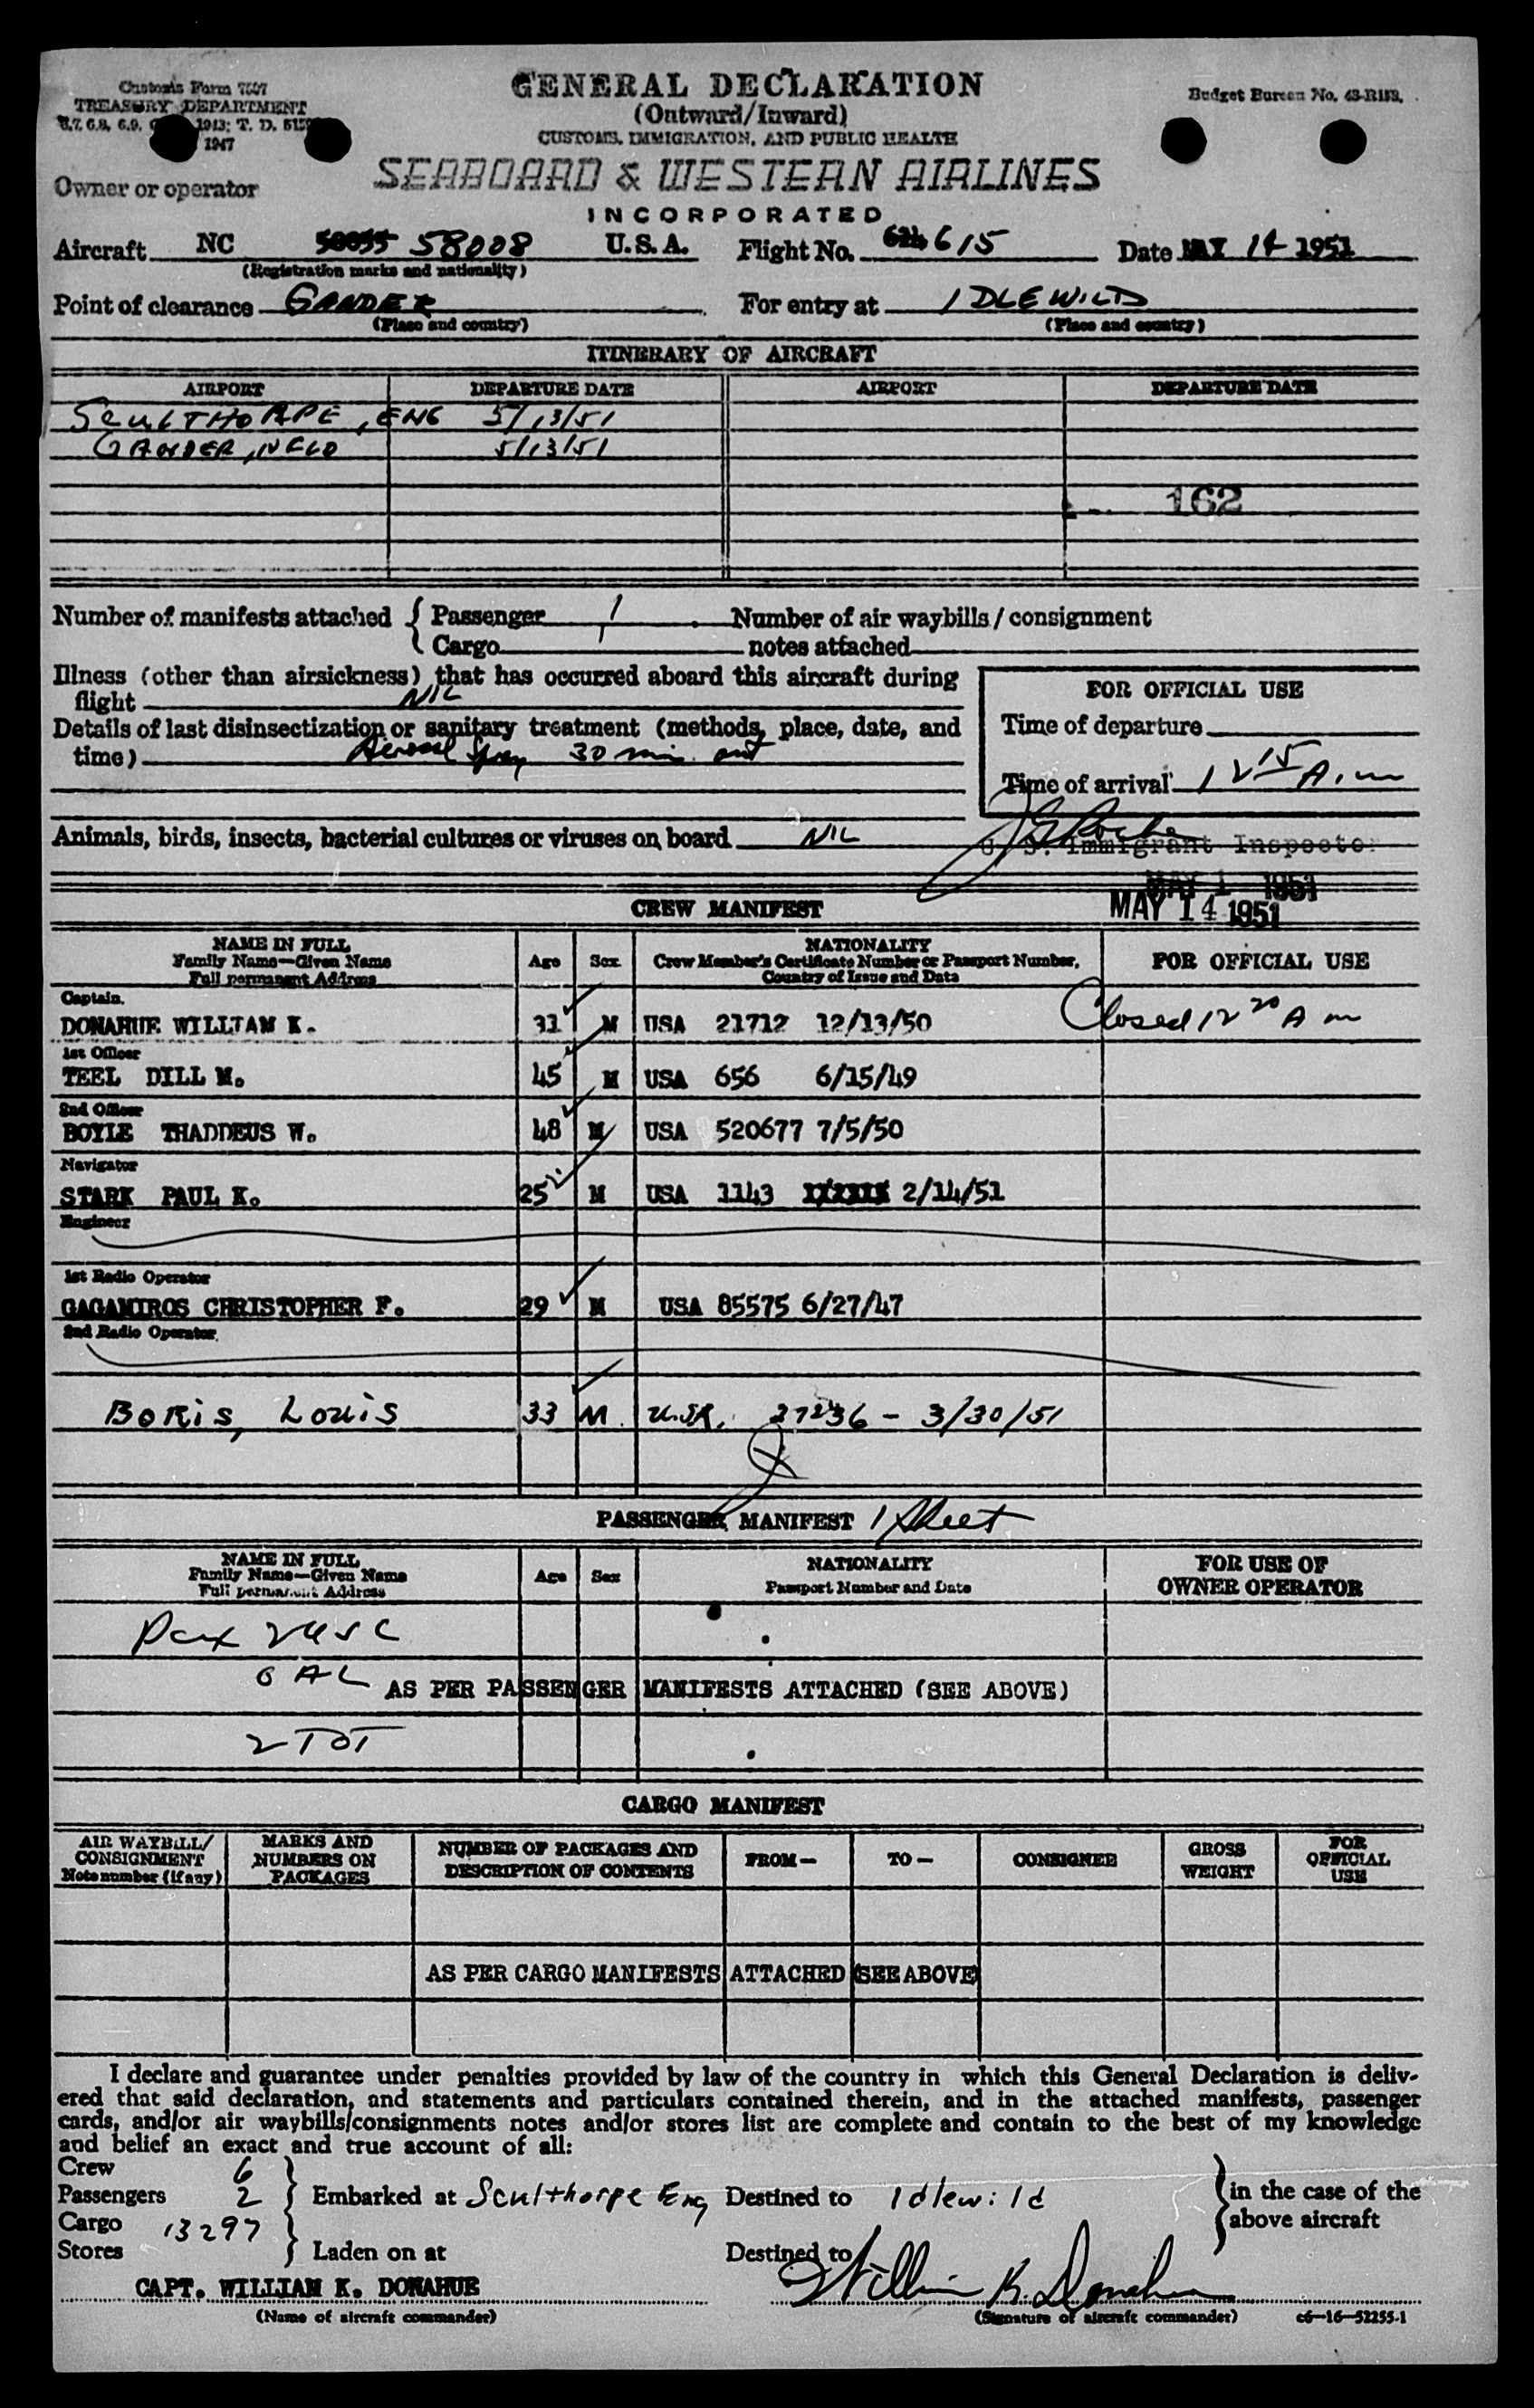 Customs Form 7507
TREASURY DEPARTMENT
1947
GENERAL DECLARATION
(Outward/Inward)
CUSTOMS, IMMIGRATION, AND PUBLIC HEALTH
Budget Bureau No. 43-R153.
Owner or operator SEABOARD & WESTERN AIRLINES
INCORPORATED
Aircraft NC 58008 U.S.A. Flight No. 615 Date MAY 14 1951
(Registration marks and nationality)
Point of clearance GANDER For entry at IDLEWILD
(Place and country) (Place and country)
ITINERARY OF AIRCRAFT
AIRPORT DEPARTURE DATE AIRPORT DEPARTURE DATE
SCULTHORPE, ENG 5/13/51
GANDER, NFLD 5/13/51
162
Number of manifests attached { Passenger 1 Number of air waybills/consignment
Cargo 1 notes attached
Illness (other than airsickness) that has occurred aboard this aircraft during
flight NIL
FOR OFFICIAL USE
Details of last disinsectization or sanitary treatment (methods, place, date, and
time) Aerosol Spray 30 min out
Time of departure
Time of arrival 12 15 A.m
Animals, birds, insects, bacterial cultures or viruses on board NIL
U. S. Immigrant Inspector
MAY 1 1951
MAY 14 1951
CREW MANIFEST
NAME IN FULL
Family Name—Given Name
Full permanent Address
Age Sex
NATIONALITY
Crew Member's Certificate Number or Passport Number,
Country of Issue and Date
FOR OFFICIAL USE
Captain.
DONAHUE WILLIAM K. 31 M USA 21712 12/13/50 Closed 12 20 A m
1st Officer
TEEL DILL M. 45 M USA 656 6/15/49
2nd Officer
BOYLE THADDEUS W. 48 M USA 520677 7/5/50
Navigator
STARK PAUL K. 25 M USA 1143 2/14/51
Engineer
1st Radio Operator
GAGAMIROS CHRISTOPHER F. 29 M USA 85575 6/27/47
2nd Radio Operator
BORIS, LOUIS 33 M. 27236 - 3/30/51
PASSENGER MANIFEST 1 Sheet
NAME IN FULL
Family Name—Given Name
Full permanent Address
Age Sex
NATIONALITY
Passport Number and Date
FOR USE OF
OWNER OPERATOR
Pax 2 USC
0 AL
AS PER PASSENGER MANIFESTS ATTACHED (SEE ABOVE)
2 TOT
CARGO MANIFEST
AIR WAYBILL/
CONSIGNMENT
Note number (if any)
MARKS AND
NUMBERS ON
PACKAGES
NUMBER OF PACKAGES AND
DESCRIPTION OF CONTENTS
FROM— TO— CONSIGNEE
GROSS
WEIGHT
FOR
OFFICIAL
USE
AS PER CARGO MANIFESTS ATTACHED (SEE ABOVE)
I declare and guarantee under penalties provided by law of the country in which this General Declaration is deliv-
ered that said declaration, and statements and particulars contained therein, and in the attached manifests, passenger
cards, and/or air waybills/consignments notes and/or stores list are complete and contain to the best of my knowledge
and belief an exact and true account of all:
Crew 6
Passengers 2 Embarked at Sculthorpe Eng Destined to Idlewild in the case of the
Cargo 13297 above aircraft
Stores Laden on at Destined to
CAPT. WILLIAM K. DONAHUE William K. Donahue
(Name of aircraft commander) (Signature of aircraft commander) c6-16-52255-1